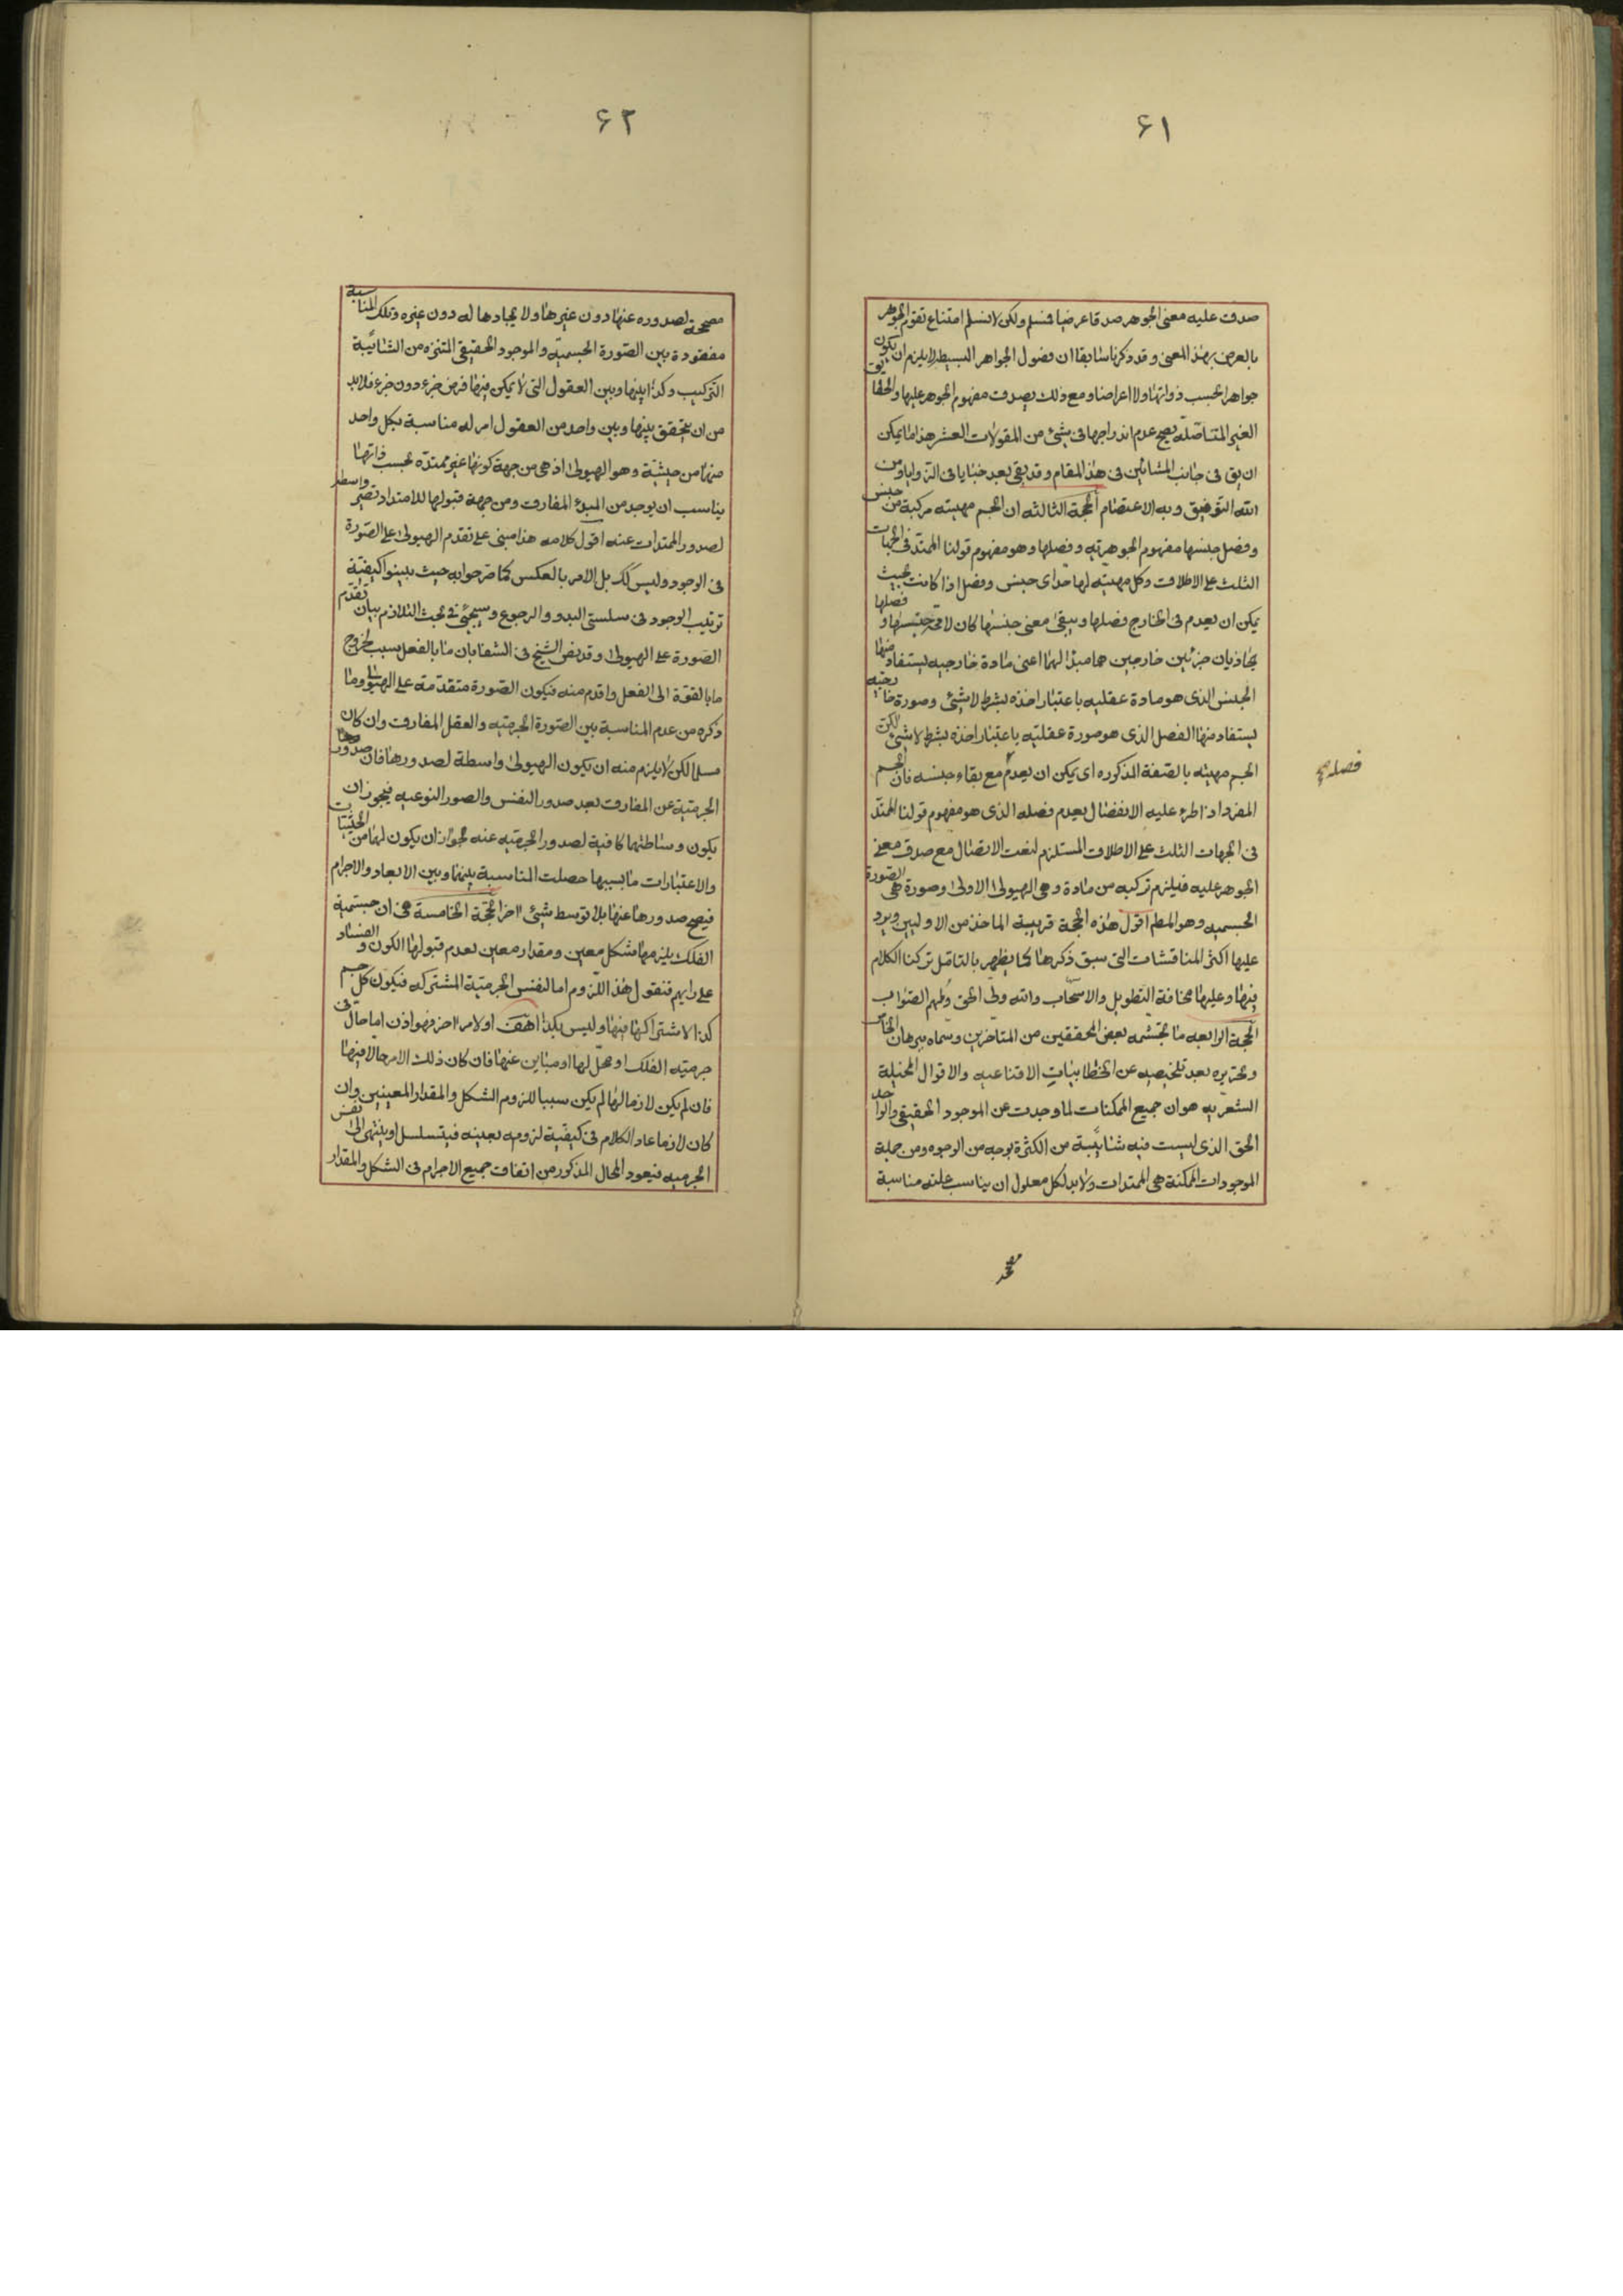 ٦١
صدق عليه معنى الجوهر صدقا عرضيا فنسلم ولكن لا نسلم امتناع تقوم الجوهر
بالعرض بهذا المعنى وقد ذكرنا سابقا ان فصول الجواهر البسيطة لا يلزم ان يكون
جواهر بحسب ذواتها ولا اعراضا ومع ذلك يصدق مفهوم الجوهر عليها والحقايق
الغير المتاصلة يصح عدم اندراجها فى شئ من المقولات العشر هذا ما يمكن
ان يق فى جانب المشائين فى هذا المقام وقد بقى بعد خبايا فى الزوايا ومن
الله التوفيق وبه الاعتصام الحجة الثالثه ان الجسم مهيته مركبة من جنس
وفصل جنسها مفهوم الجوهريه وفصلها وهو مفهوم قولنا الممتد فى الجهات
الثلث على الاطلاق وكل مهيته لها حد اى جنس وفصل اذا كانت بحيث
يمكن ان يعدم فى الخارج فصلها ويبقى معنى جنسها كان لا مح جنسها و فصلها
يحاذيان جزئين خارجين هما مبدا لهما اعنى مادة خارجيه يستفاد منها
الجنس الذى هو مادة عقليه باعتبار اخذه بشرط لا شئ وصورة خارجيه
يستفاد منها الفصل الذى هو صورة عقليه باعتبار اخذه بشرط لا شئ لكن
الجسم مهيته بالصفة المذكوره اى يمكن ان يعدم مع بقاء جنسه فان الجسم
فصله صح
المفرد اذا طرء عليه الانفصال يعدم فصله الذى هو مفهوم قولنا الممتد
فى الجهات الثلث على الاطلاق المستلزم لنعت الاتصال مع صدق معنى
الجوهر عليه فيلزم تركبه من مادة وهى الهيولى الاولى وصورة هى الصورة
الجسميه وهو المطم اقول هذه الحجة قريبة الماخذ من الاوليين ويرد
عليها اكثر المناقشات التى سبق ذكرها كما يظهر بالتامل تركنا الكلام
فيها وعليها مخافة التطويل والاسهاب والله ولى الحق وملهم الصواب
الحجة الرابعه ما تجشمه بعض المحققين من المتاخرين وسماه ببرهان الخاص
وتحريره بعد تلخيصه عن الخطابيات الاقناعيه والاقوال المخيلة
الشعريه هو ان جميع الممكنات لما وجدت عن الموجود الحقيقى والواحد
الحق الذى ليست فيه شائبة من الكثرة بوجه من الوجوه ومن جملة
الموجودات الممكنة هى الممتدات ولا بد لكل معلول ان يناسب علته مناسبة
٦٢
مصححة لصدوره عنها دون غيرها ولا يجادها له دون غيره وتلك المناسبة
مفقودة بين الصورة الجسمية والموجود الحقيقى المتنزه من الشائبة
التركيب وكذا بينها وبين العقول التى لا يمكن فيها فرض جزء دون جزء فلابد
من ان يتحقق بينها وبين واحد من العقول امر له مناسبة بكل واحد
منها من حيثية وهو الهيولى اذ هى من جهة كونها غير ممتدة بحسب ذاتها
يناسب ان يوجد من المبدء المفارق ومن جهة قبولها للامتداد تصير واسطة
لصدور الممتدات عنه اقول كلامه هذا مبنى على تقدم الهيولى على الصورة
فى الوجود وليس كك بل الامر بالعكس كما مر جوابه حيث بينوا كيفية
ترتيب الوجود فى سلسلتى البدو والرجوع وسيجئ فى بحث التلازم بيان تقدم
الصورة على الهيولى وقد نص الشيخ فى الشفا بان ما بالفعل سبب لخروج
ما بالقوة الى الفعل واقدم منه فيكون الصورة متقدمة على الهيولى وما
ذكره من عدم المناسبة بين الصورة الجرميه والعقل المفارق وان كان
مسلما لكن لا يلزم منه ان يكون الهيولى واسطة لصدورها فان صدور
الجرمية عن المفارق بعد صدور النفس والصور النوعيه فيجوز ان
يكون وساطتهما كافية لصدور الجرميه عنه لجواز ان يكون لهما من الحيثيات
والاعتبارات ما بسببها حصلت المناسبة بينهما وبين الابعاد والاجرام
فيصح صدورها عنها بلا توسط شئ اخر الحجة الخامسة هى ان جسمية
الفلك يلزمها شكل معين ومقدار معين لعدم قبولها الكون والفساد
على رايهم فنقول هذا اللزوم اما لنفس الجرمية المشتركه فيكون كل جسم
كذا لاشتراكها فيها وليس بكذا هف او لامر اخر فهو اذن اما حال فى
جرمية الفلك او محل لها او مباين عنها فان كان ذلك الامر حالا فيها
فان لم يكن لازما لها لم يكن سببا للزوم الشكل والمقدار المعينين وان
كان لازما عاد الكلام فى كيفية لزومه بعينه فيتسلسل او ينتهى الى نفس
الجرميه فيعود المحال المذكور من اتفاق جميع الاجرام فى الشكل والمقدار